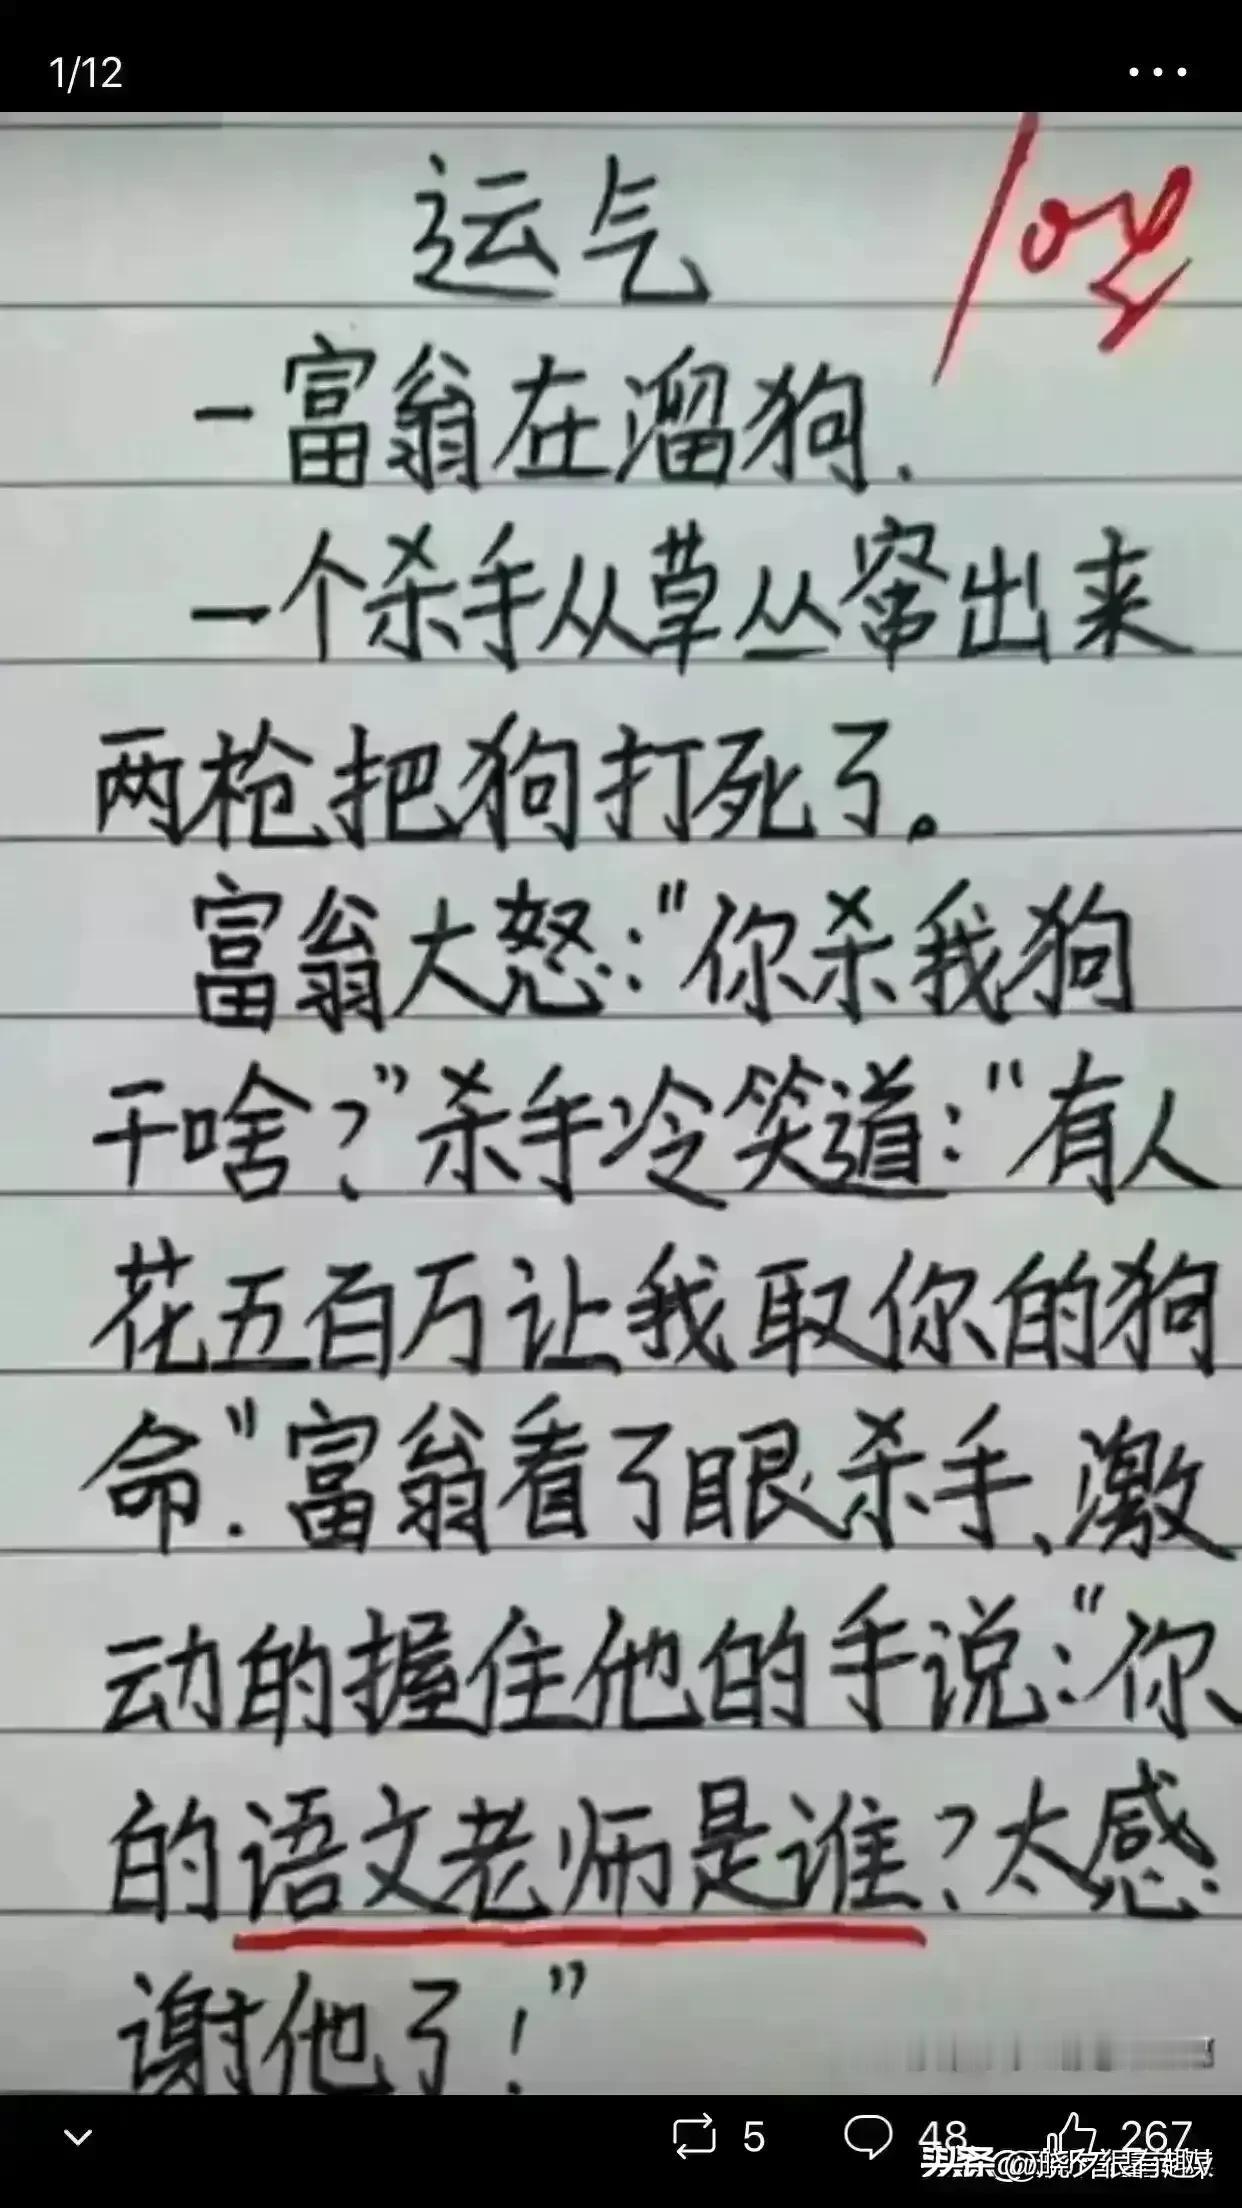 1/12
运气
一富翁在溜狗.
一个杀手从草丛窜出来
两枪把狗打死了。
富翁大怒:"你杀我狗
干啥?"杀手冷笑道:"有人
花五百万让我取你的狗
命".富翁看了眼杀手、激
动的握住他的手说:"你
的语文老师是谁?太感
谢他了!"
5
48
267
头条